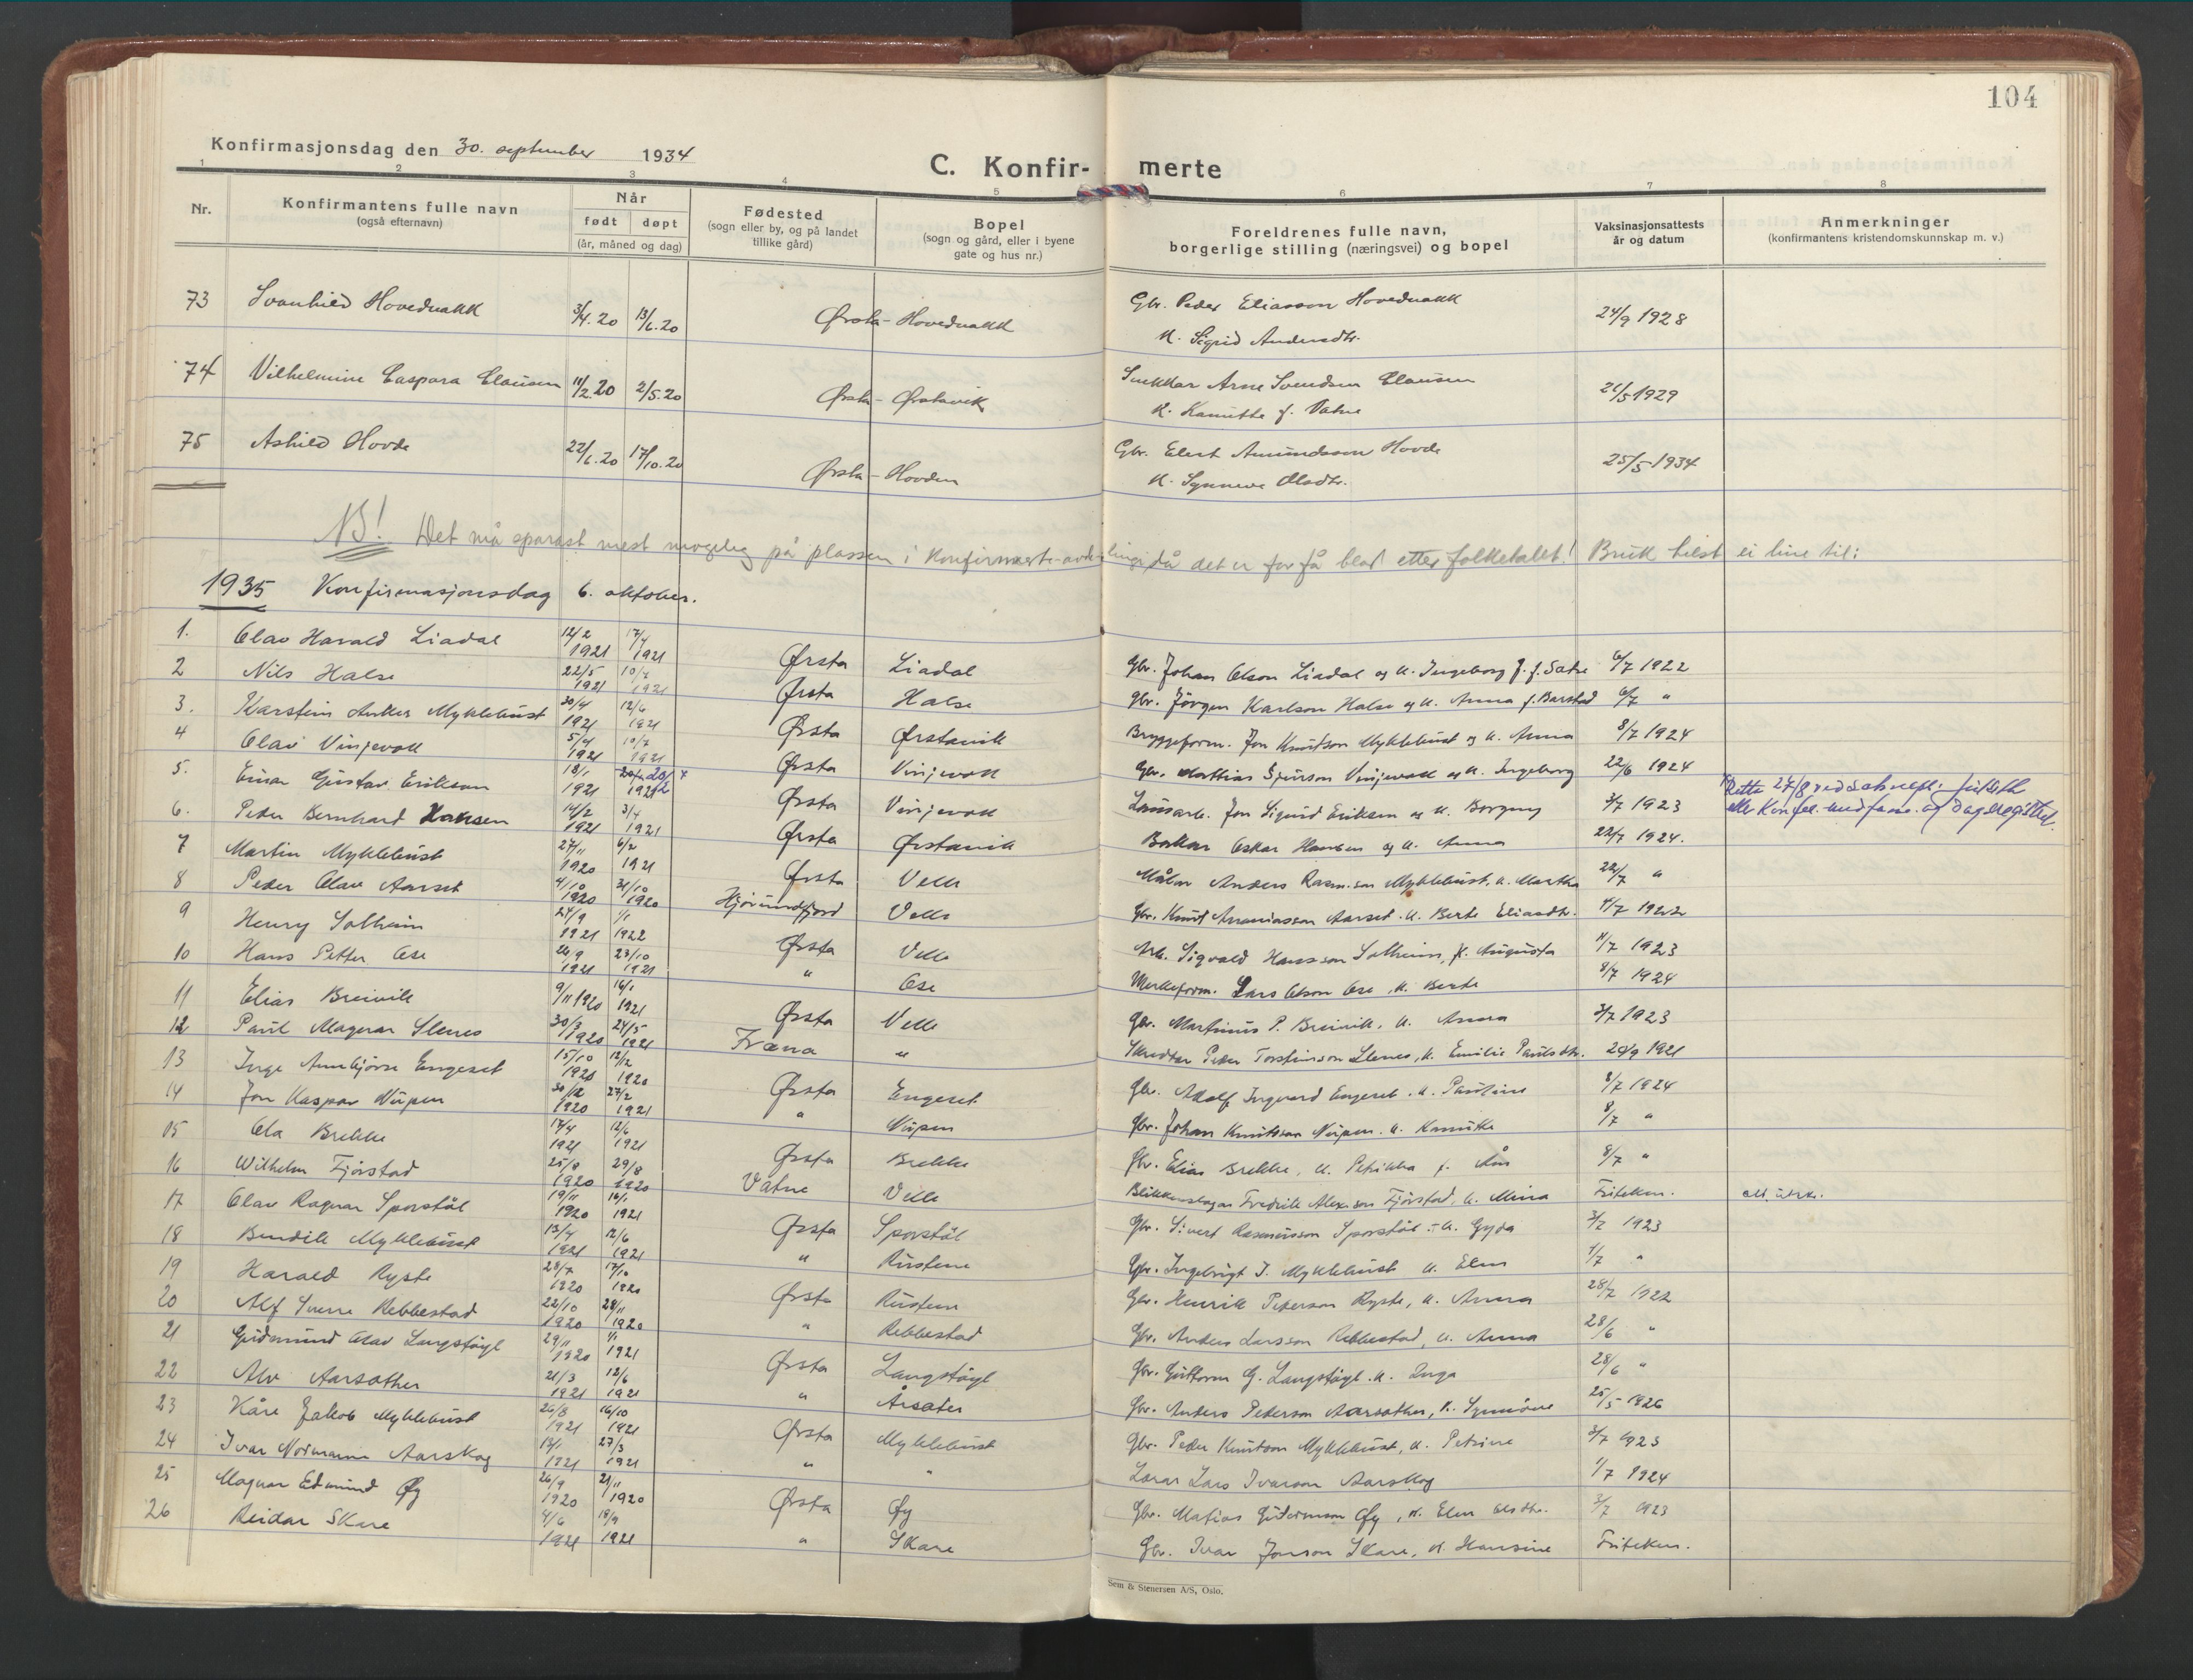 104
Konfirmasjonsdag den 30. september 1934
C. Konfir- merte
1 2 3 4 5 6 7 8
Nr. Konfirmantens fulle navn (også efternavn) Når født døpt (år, måned og dag) Fødested (sogn eller by, og på landet tillike gård) Bopel (sogn og gård, eller i byene gate og hus nr.) Foreldrenes fulle navn, borgerlige stilling (næringsvei) og bopel Vaksinasjonsattests år og datum Anmerkninger (konfirmantens kristendomskunnskap m. v.)
73 Svanhild Hovednakk 3/4.20 13/6.20 Ørsta - Hovednakk Gbr. Peder Eliasson Hovednakk 24/9 1928
K. Sigrid Andersdtr.
74 Vilhelmine Caspara Clausen 11/2.20 2/5.20 Ørsta - Ørstavik Snekkar Arne Svendsen Clausen 21/5 1929
K. Kamitha f. Vatne
75 Ashild Hovde 22/6.20 17/10.20 Ørsta - Hovden Gbr. Elert Amundsson Hovde 25/5 1934
K. Synneve Olsdtr.
NB! Det må sparast mest mogeleg på plassen i Konfirmerte-avdelingi då det er for få blad etter folketalet! Bruk helst ei line til:
1935 Konfirmasjonsdag 6. oktober.
1. Olav Harald Liadal 12/2 1921 17/4 1921 Ørsta Liadal Gbr. Johan Olson Liadal og K. Ingeborg J. f. Sætre 6/7 1922
2 Nils Halse 22/5 1921 10/7 1921 Ørsta Halse Gbr. Jørgen Karlson Halse og K. Anna f. Barstad 6/7 "
3. Karstein Anker Myklebust 30/4 1921 12/6 1921 Ørsta Ørstavik Bryggeform. Jon Knutson Myklebust og K. Anna 8/7 1924
4 Olav Vinjevoll 5/4 1921 10/7 1921 Ørsta Vinjevoll Gbr. Mattias Sjurson Vinjevoll og K. Ingeborg 22/6 1924
5. Einar Gustav Eriksen 18/1 1921 1921 Ørsta Vinjevoll Lausarb. Jon Sigurd Eriksen og K. Borgny 3/7 1923
6. Peder Bernhard Hansen 14/2 1921 3/4 1921 Ørsta Ørstavik Bakar Oskar Hansen og K. Anna 22/7 1924.
7 Martin Myklebust 27/11 1920 6/2 1921 Ørsta Velle Målar Anders Rasm.son Myklebust, K. Martha 22/7 "
8 Peder Olav Aarset 4/10 1920 31/10 1920 Hjørundfjord Velle Gbr. Knut Ananiasson Aarset. K. Berte Eliasdtr. 4/7 1922
9 Henry Solheim 24/9 1921 1/1 1922 Ørsta Velle Arb. Sigvald Hansson Solheim, K. Augusta 11/7 1923
10 Hans Petter Ose 26/9 1921 23/10 1921 " Ose Verkeform. Lars Olson Ose, K. Berte 8/7 1924
11 Elias Breivik 9/11 1920 16/1 1921 Ørsta Velle Gbr. Martinus P. Breivik, K. Anna 3/7 1923
12 Paul Magnar Stenes 30/3 1920 24/5 1921 Fræna " Skreddar Peder Torsteinson Stenes, K. Emilie Paulsdtr. 20/9 1921
13 Inge Annbjørn Engeset 15/10 1920 12/2 1920 Ørsta Engeset Gbr. Adolf Ingvard Engeset. K. Pauline 8/7 1924
14 Jon Kaspar Nupen 30/12 1920 27/2 1921 " Nupen Gbr. Johan Knutsson Nupen. K. Kamitta 8/7 "
15 Ola Brekke 17/4 1921 12/6 1921 Ørsta Brekke Gbr. Elias Brekke, K. Petrikka f. Åm 8/7 "
16 Wilhelm Fjørstad 25/8 1920 29/8 1920 Vatne Velle Blikkenslagar Fredrik Alex.son Fjørstad, K. Mina Friteken.
17 Olav Ragnar Sporstøl 19/11 1920 16/1 1921 Ørsta Sporstøl Gbr. Sivert Rasmusson Sporstøl - K. Gyda 3/7 1923
18 Bendik Myklebust 13/4 1921 12/6 1921 " Rustene Gbr. Ingebrigt J. Myklebust K. Elen 4/7 "
19 Harald Ryste 28/7 1920 17/10 1920 Ørsta Rustene Gbr. Henrik Petersson Ryste, K. Anna 28/7 1922
20 Alf Sverre Rebbestad 22/10 1920 28/11 1920 " Rebbestad Gbr. Anders Larsson Rebbestad, K. Anna 28/6 "
21 Gudmund Olav Langstøyl 29/11 1920 1/1 1921 Ørsta Langstøyl Gbr. Guttorm G. Langstøyl. K. Inga 28/6 "
22 Alv Aarsæther 21/3 1921 12/6 1921 " Årsæter Gbr. Anders Pederson Aarsæther, K. Synnøve 25/5 1926
23 Kåre Jakob Myklebust 26/8 1921 16/10 1921 Ørsta Myklebust Gbr. Peder Knutson Myklebust, K. Petrine 3/7 1923
24 Ivar Normann Aarskog 12/1 1921 27/3 1921 " " Lærar Lars Ivarson Aarskog 1/7 1924
25 Magnar Edmund Øy 26/9 1920 21/11 1920 Ørsta Øy Gbr. Matias Gudmunson Øy, K. Elen Olsdtr. 3/7 1923
26 Reidar Skare 4/6 1921 18/9 1921 " Skare Gbr. Ivar Jonson Skare, K. Hansine Friteken.
Sem & Stenersen A/S, Oslo.